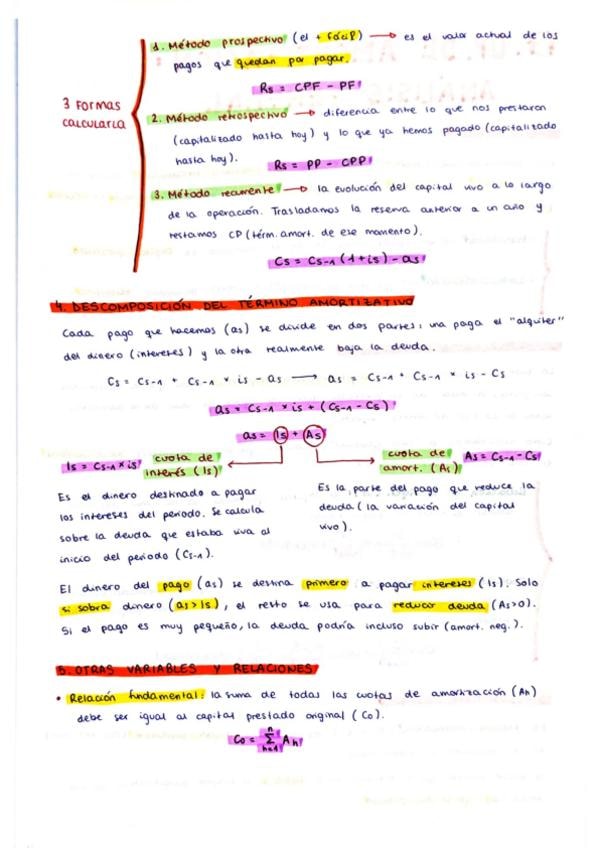 1. Método prospectivo (el + fácil) → es el valor actual de los
pagos que quedan por pagar.
Rs = CPF - PF
3 FORMAS
CALCULARLA
2. Método retrospectivo → diferencia entre lo que nos prestaron
(capitalizado hasta hoy) y lo que ya hemos pagado (capitalizado
hasta hoy).
Rs = PP - CPP
3. Método recurrente → la evolución del capital vivo a lo largo
de la operación. Trasladamos la reserva anterior a un año y
restamos CP (térm. amort. de ese momento).
Cs = Cs-1 (1+is) - as
4. DESCOMPOSICIÓN DEL TÉRMINO AMORTIZATIVO
Cada pago que hacemos (as) se divide en dos partes: una paga el "alquiler"
del dinero (intereses) y la otra realmente baja la deuda.
Cs = Cs-1 + Cs-1 * is - as → as = Cs-1 + Cs-1 * is - Cs
as = Cs-1 * is + (Cs-1 - Cs)
as = Is + As
Is = Cs-1 * is cuota de
interés (Is)
cuota de As = Cs-1 - Cs
amort. (As)
Es el dinero destinado a pagar
los intereses del periodo. Se calcula
sobre la deuda que estaba viva al
inicio del periodo (Cs-1).
Es la parte del pago que reduce la
deuda (la variación del capital
vivo).
El dinero del pago (as) se destina primero a pagar intereses (Is). Solo
si sobra dinero (as > Is), el resto se usa para reducir deuda (As>0).
Si el pago es muy pequeño, la deuda podría incluso subir (amort. neg.).
5. OTRAS VARIABLES Y RELACIONES
• Relación fundamental: la suma de todas las cuotas de amortización (Ah)
debe ser igual al capital prestado original (Co).
Co = n Σ h=1 Ah